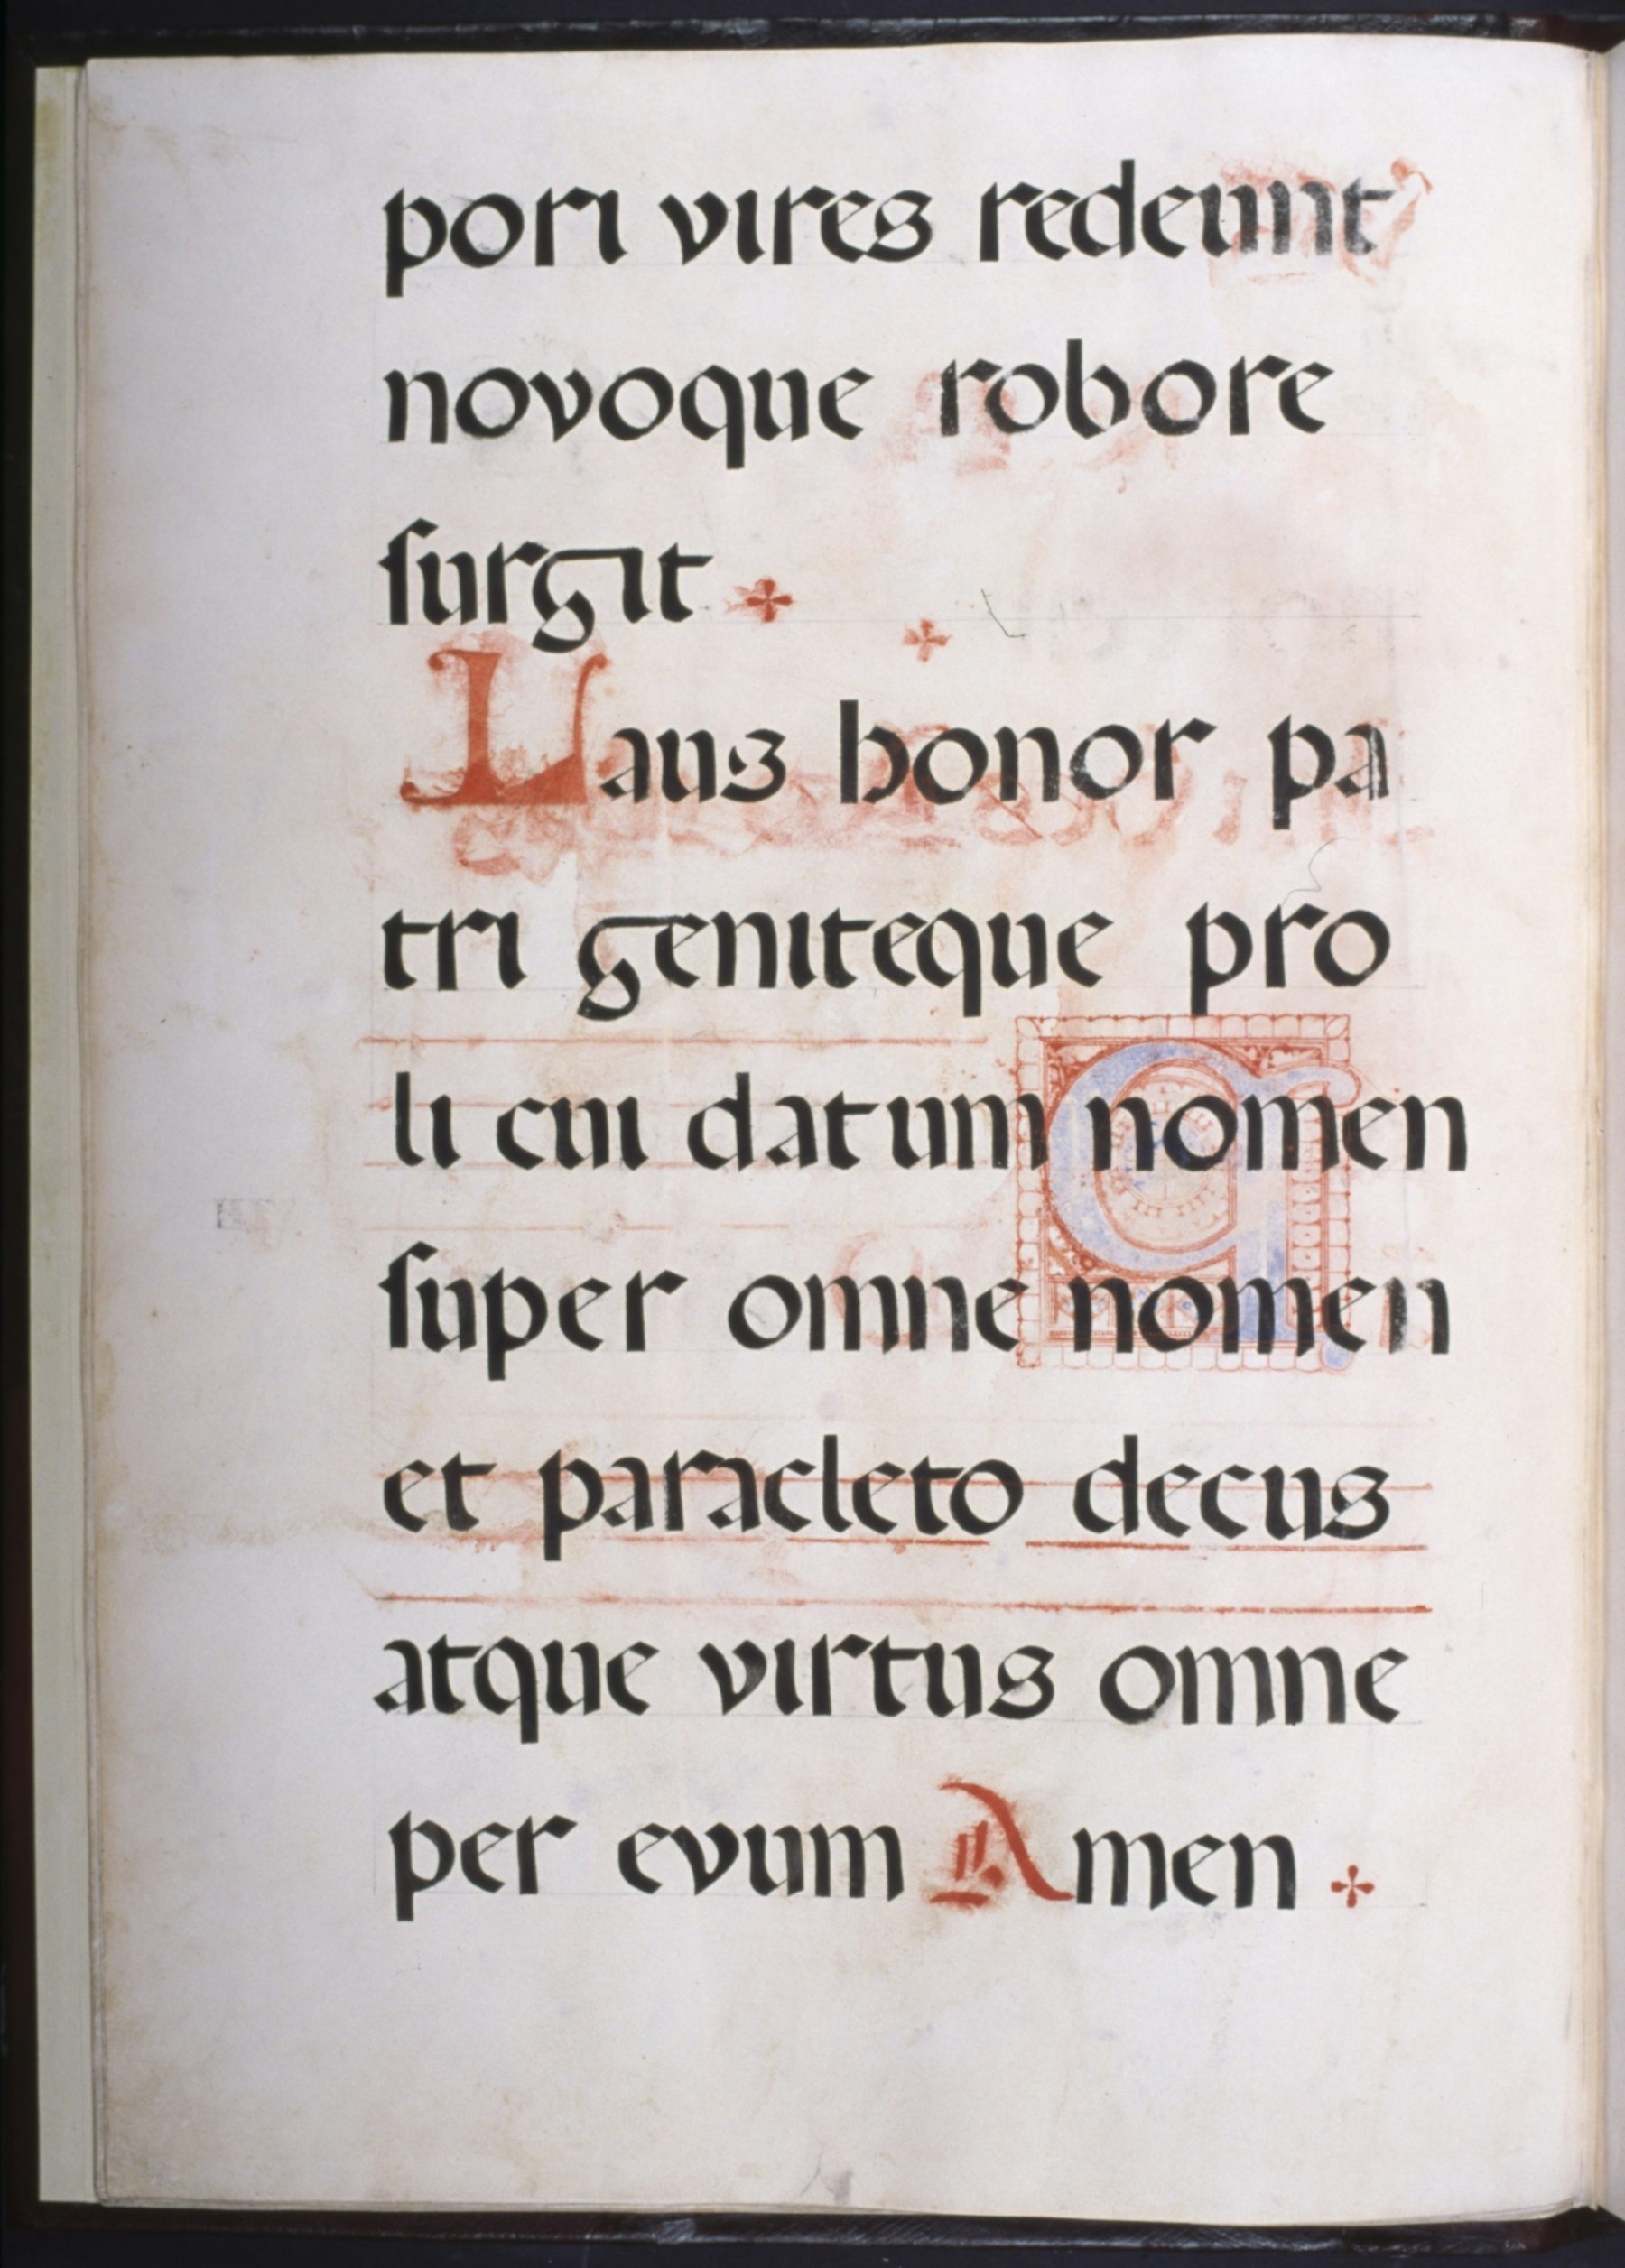 pori vires redeunt
novoque robore
ſurgit
Laus honor pa
tri geniteque pro
li cui datum nomen
ſuper omne nomen
et paracleto decus
atque virtus omne
per evum Amen